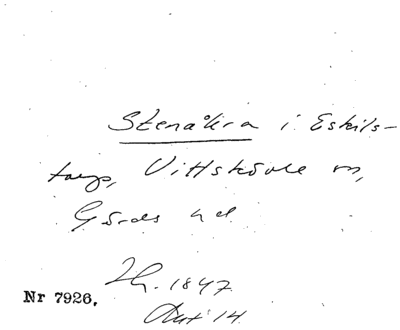 Stenåkra i Eskils-
torp, Vittskövle sn,
Gärds hd
1847
Nr 7926.
Akt 14